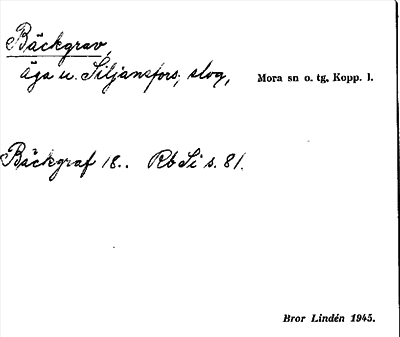 Bäckgrav,
äga u. Siljansfors; slog, Mora sn o. tg. Kopp. l.
Bäckgraf 18.. Rb Si s. 81.
Bror Lindén 1945.